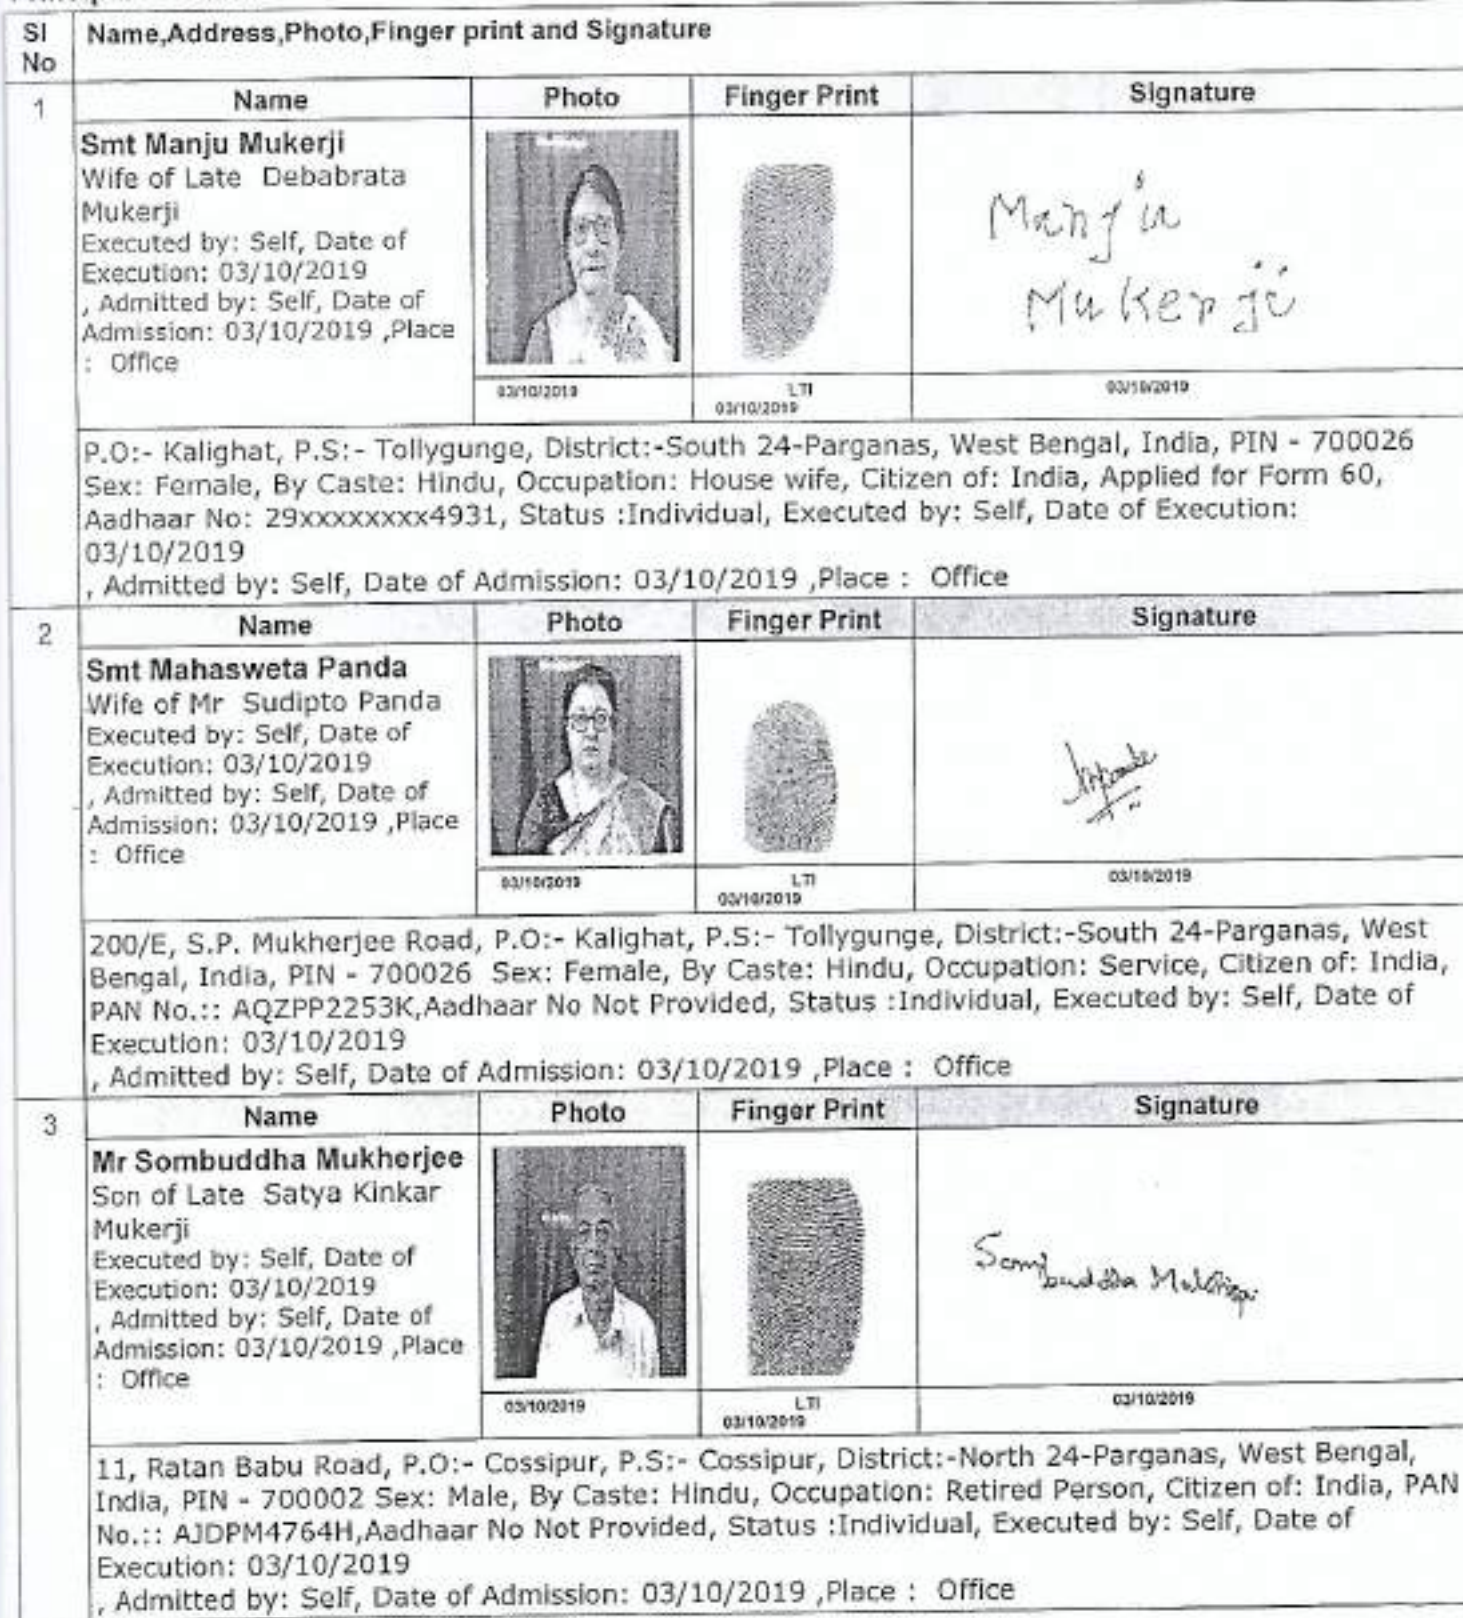 Sl No
Name,Address,Photo,Finger print and Signature
1
Name Photo Finger Print Signature
Smt Manju Mukerji
Wife of Late Debabrata
Mukerji
Executed by: Self, Date of
Execution: 03/10/2019
, Admitted by: Self, Date of
Admission: 03/10/2019 ,Place
: Office
Manju
Mukerji
03/10/2019
LTI
03/10/2019
03/10/2019
P.O:- Kalighat, P.S:- Tollygunge, District:-South 24-Parganas, West Bengal, India, PIN - 700026
Sex: Female, By Caste: Hindu, Occupation: House wife, Citizen of: India, Applied for Form 60,
Aadhaar No: 29xxxxxxxx4931, Status :Individual, Executed by: Self, Date of Execution:
03/10/2019
, Admitted by: Self, Date of Admission: 03/10/2019 ,Place : Office
2
Name Photo Finger Print Signature
Smt Mahasweta Panda
Wife of Mr Sudipto Panda
Executed by: Self, Date of
Execution: 03/10/2019
, Admitted by: Self, Date of
Admission: 03/10/2019 ,Place
: Office
03/10/2019
LTI
03/10/2019
03/10/2019
200/E, S.P. Mukherjee Road, P.O:- Kalighat, P.S:- Tollygunge, District:-South 24-Parganas, West
Bengal, India, PIN - 700026 Sex: Female, By Caste: Hindu, Occupation: Service, Citizen of: India,
PAN No.:: AQZPP2253K,Aadhaar No Not Provided, Status :Individual, Executed by: Self, Date of
Execution: 03/10/2019
, Admitted by: Self, Date of Admission: 03/10/2019 ,Place : Office
3
Name Photo Finger Print Signature
Mr Sombuddha Mukherjee
Son of Late Satya Kinkar
Mukerji
Executed by: Self, Date of
Execution: 03/10/2019
, Admitted by: Self, Date of
Admission: 03/10/2019 ,Place
: Office
Sombuddha
03/10/2019
LTI
03/10/2019
03/10/2019
11, Ratan Babu Road, P.O:- Cossipur, P.S:- Cossipur, District:-North 24-Parganas, West Bengal,
India, PIN - 700002 Sex: Male, By Caste: Hindu, Occupation: Retired Person, Citizen of: India, PAN
No.:: AJDPM4764H,Aadhaar No Not Provided, Status :Individual, Executed by: Self, Date of
Execution: 03/10/2019
, Admitted by: Self, Date of Admission: 03/10/2019 ,Place : Office